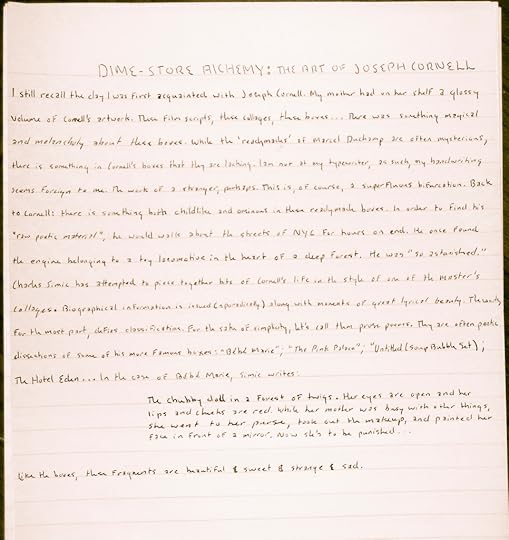 DIME-STORE ALCHEMY: THE ART OF JOSEPH CORNELL
I still recall the day I was first acquainted with Joseph Cornell. My mother had on her shelf a glossy
volume of Cornell's artwork. These film scripts, these collages, these boxes... There was something magical
and melancholy about these boxes. While the 'readymades' of Marcel Duchamp are often mysterious,
there is something in Cornell's boxes that they are lacking. I am not at my typewriter, as such, my handwriting
seems foreign to me. The work of a stranger, perhaps. This is, of course, a superfluous bifurcation. Back
to Cornell: there is something both childlike and ominous in these readymade boxes. In order to find his
"raw poetic material", he would walk about the streets of NYC for hours on end. He once found
the engine belonging to a toy locomotive in the heart of a deep forest. He was "so astonished."
Charles Simic has attempted to piece together bits of Cornell's life in the style of one of the master's
collages. Biographical information is issued (sporadically) along with moments of great lyrical beauty. The work,
for the most part, defies classification. For the sake of simplicity, let's call them prose poems. They are often poetic
dissections of some of his more famous boxes: "Bébé Marie", "The Pink Palace", "Untitled (Soap Bubble Set),
The Hotel Eden... In the case of Bébé Marie, Simic writes:
The chubby doll in a forest of twigs. Her eyes are open and her
lips and cheeks are red. While her mother was busy with other things,
she went to her purse, took out the makeup, and painted her
face in front of a mirror. Now she's to be punished...
Like the boxes, these fragments are beautiful & sweet & strange & sad.